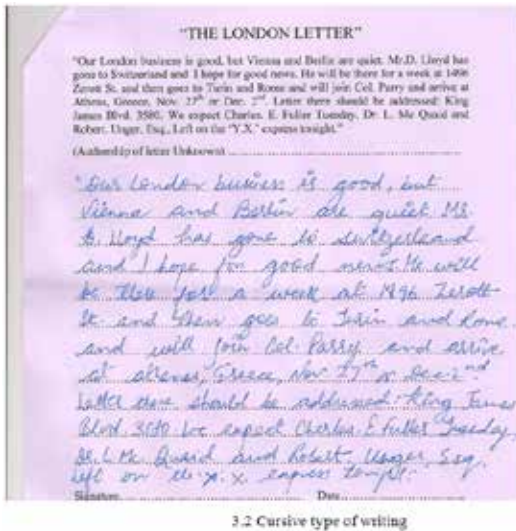 "THE LONDON LETTER"
"Our London business is good, but Vienna and Berlin are quiet. Mr.D. Lloyd has
gone to Switzerland and I hope for good news. He will be there for a week at 1496
Zerott St. and then goes to Turin and Rome and will join Col. Parry and arrive at
Athens, Greece, Nov. 27th or Dec. 2nd. Letter there should be addressed: King
James Blvd. 3580. We expect Charles. E. Fuller Tuesday. Dr. L. Mc Quaid and
Robert. Unger, Esq., Left on the "Y.X." express tonight."
(Authorship of letter Unknown)
"Our London business is good, but
Vienna and Berlin are quiet. Mr
D. Lloyd has gone to Switzerland
and I hope for good news. He will
be there for a week at 1496 Zerott
St and then goes to Turin and Rome
and will join Col. Parry and arrive
at Greece, Nov 27th or Dec 2nd
Letter there should be addressed King James
Blvd 3580 We expect Charles. E. Fuller Tuesday
Dr. L. Mc Quard and Robert Unger, Esq,
left on the y. x. express
Signature Date
3.2 Cursive type of writing